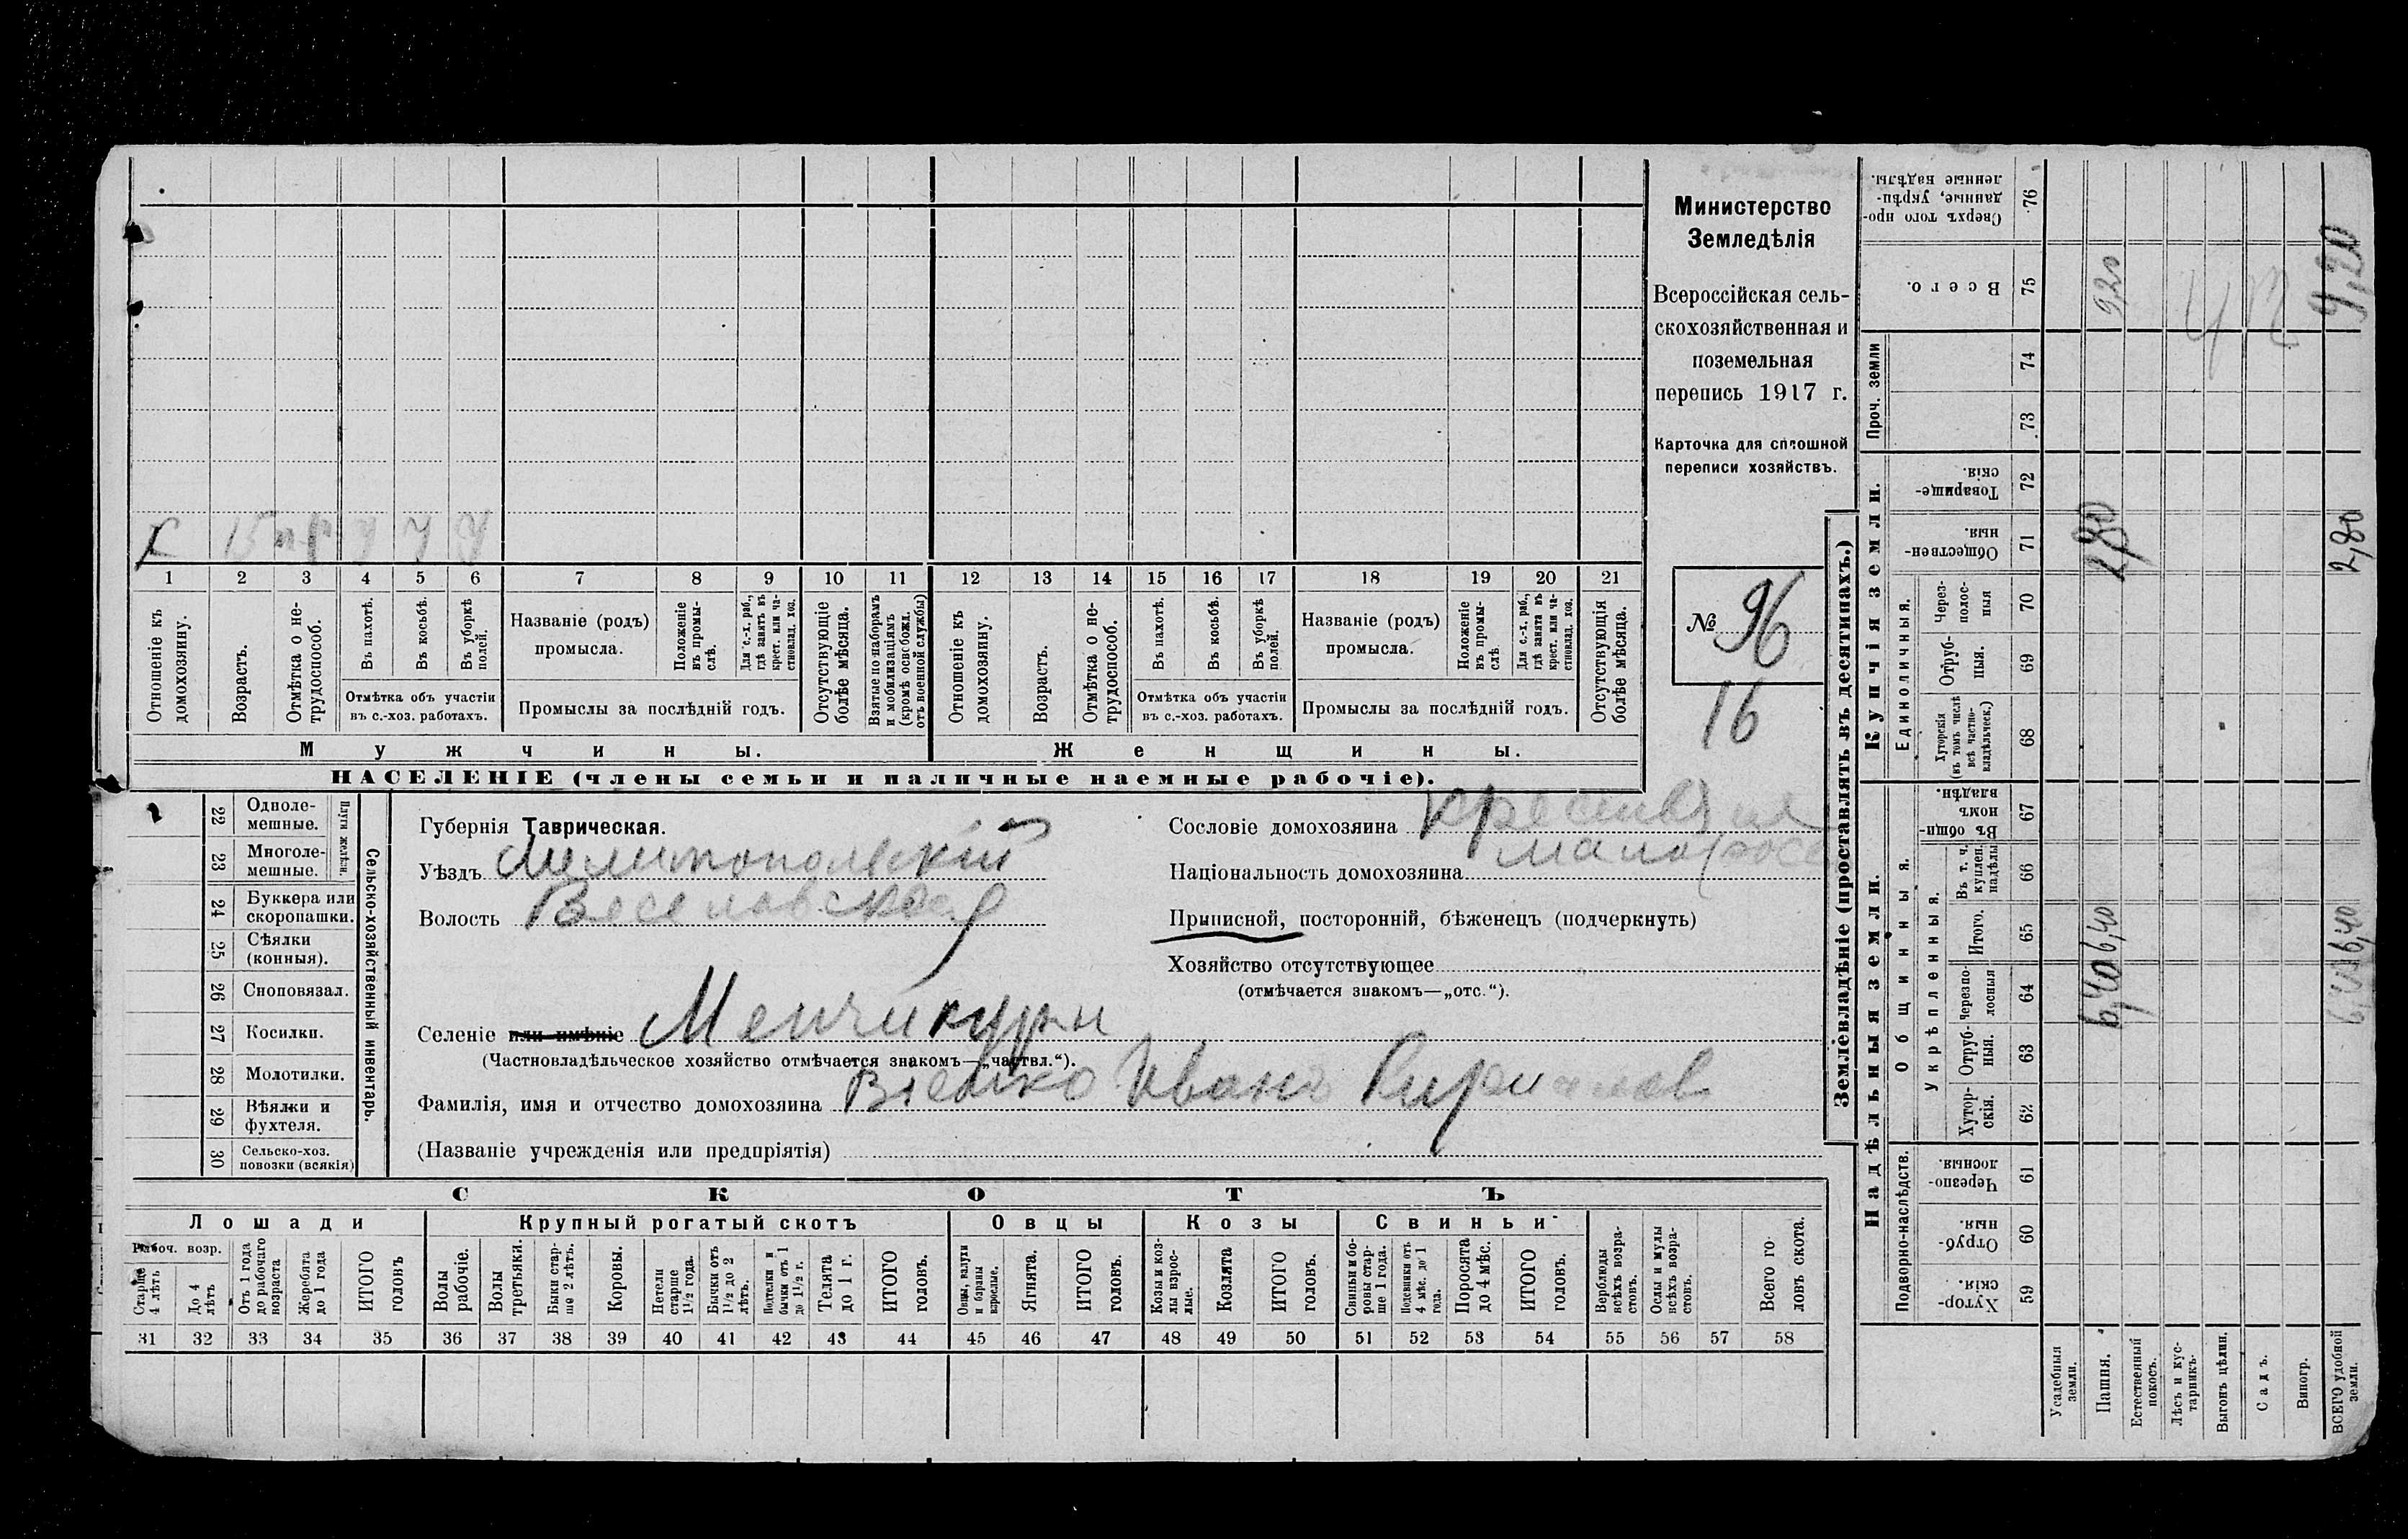 Министерство
Земледѣлія
Всероссійская сель-
скохозяйственная и
поземельная
перепись 1917 г.
Карточка для сплошной
переписи хозяйствъ.
№ 96
16
х 15 у у у
1 2 3 4 5 6 7 8 9 10 11 12 13 14 15 16 17 18 19 20 21
Отношеніе къ домохозяину.
Возрастъ.
Отмѣтка о не-трудоспособ.
Въ пахотѣ.
Въ косьбѣ.
Въ уборкѣ полей.
Отмѣтка объ участіи
въ с.-хоз. работахъ.
Названіе (родъ)
промысла.
Положеніе въ промы-слѣ.
Для с.-х. раб., гдѣ занятъ въ крест. или ча-стновлад. хоз.
Промыслы за послѣдній годъ.
Отсутствующіе болѣе мѣсяца.
Взятые по наборамъ и мобилизаціямъ (кромѣ освобожд. отъ военной службы)
Отношеніе къ домохозяину.
Возрастъ.
Отмѣтка о не-трудоспособ.
Въ пахотѣ.
Въ косьбѣ.
Въ уборкѣ полей.
Отмѣтка объ участіи
въ с.-хоз. работахъ.
Названіе (родъ)
промысла.
Положеніе въ промы-слѣ
Для с.-х. раб., гдѣ занята въ крест. или ча-стновлад. хоз.
Промыслы за послѣдній годъ.
Отсутствующія болѣе мѣсяца.
Мужчины.
Женщины.
НАСЕЛЕНІЕ (члены семьи и наличные наемные рабочіе).
22 Одноле-мешные.
23 Многоле-мешные.
Плуги желѣзн.
24 Буккера или скоропашки.
25 Сѣялки (конныя).
26 Сноповязал.
27 Косилки.
28 Молотилки.
29 Вѣялки и фухтеля.
30 Сельско-хоз. повозки (всякія)
Сельско-хозяйственный инвентарь.
Губернія Таврическая.
Уѣздъ Мелитопольскій
Волость Веселовская
Селеніе или имѣніе Менчикуры
(Частновладѣльческое хозяйство отмѣчается знакомъ—„частвл.“).
Фамилія, имя и отчество домохозяина Иванъ
(Названіе учрежденія или предпріятія)
Сословіе домохозяина
Національность домохозяина
Приписной, посторонній, бѣженецъ (подчеркнуть)
Хозяйство отсутствующее
(отмѣчается знакомъ—„отс.“).
СКОТЪ
Лошади
Крупный рогатый скотъ
Овцы
Козы
Свиньи
Рабоч. возр.
Старше 4 лѣтъ
До 4 лѣтъ
Отъ 1 года до рабочаго возраста
Жеребята до 1 года
ИТОГО головъ
Волы рабочіе.
Волы третьяки.
Быки стар-ше 2 лѣтъ.
Коровы.
Петели старше 1½ года.
Бычки отъ 1½ до 2 лѣтъ.
Подтелки и бычки отъ 1 до 1½ г.
Телята до 1 г.
ИТОГО головъ.
Овцы, валухи и бараны взрослые.
Ягнята.
ИТОГО головъ.
Козы и коз-лы взрос-лые.
Козлята
ИТОГО головъ.
Свиньи и бо-ровы стар-ше 1 года.
Подсвинки отъ 4 мѣс. до 1 года.
Поросята до 4 мѣс.
ИТОГО головъ.
Верблюды всѣхъ возра-стовъ.
Ослы и мулы всѣхъ возра-стовъ.
Всего го-ловъ скота.
31 32 33 34 35 36 37 38 39 40 41 42 43 44 45 46 47 48 49 50 51 52 53 54 55 56 57 58
Землевладѣніе (проставлять въ десятинахъ.)
Надѣльныя земли.
Купчія земли.
Проч. земли
Подворно-наслѣдств.
Общинныя.
Укрѣпленныя.
Единоличныя.
Хутор-скія. 59
Отруб-ныя. 60
Черезпо-лосныя. 61
Хутор-скія. 62
Отруб-ныя. 63
Черезпо-лосныя 64
Итого. 65
Въ т. ч. куплен. надѣлы 66
Въ общин-номъ владѣн. 67
Хуторскія (въ томъ числѣ всѣ частно-владѣльческ.) 68
Отруб-ныя. 69
Через-полос-ныя 70
Обществен-ныя. 71
Товарище-скія. 72
73
74
Всего. 75
Сверхъ того про-данные, укрѣп-ленные надѣлы. 76
Усадебныя земли.
Пашня. 6,40 6,40 2,80 9,20
Естественный покосъ.
Лѣсъ и кус-тарникъ.
Выгонъ цѣлин.
Садъ.
Виногр.
ВСЕГО удобной земли. 6,40 6,40 2,80 9,20